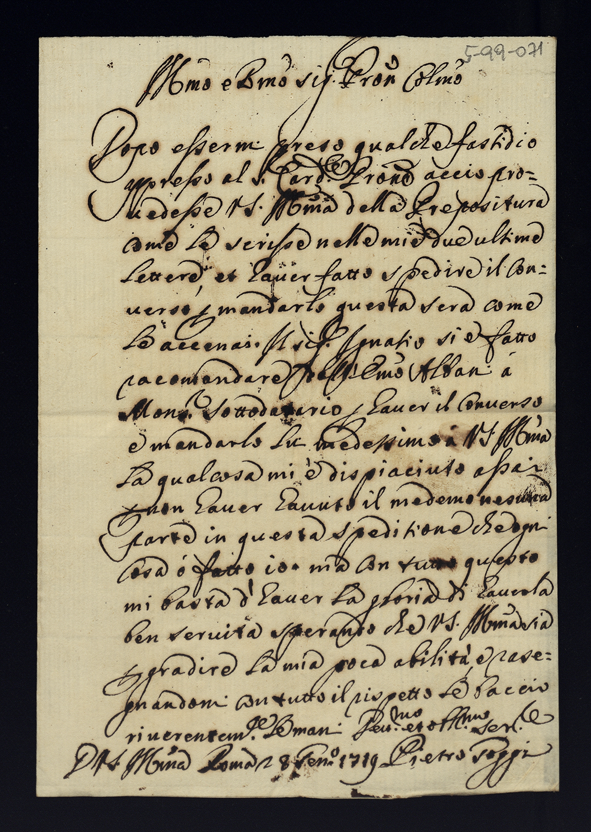 5-99-071
Illmo e Rmo sig. Pron Colmo
Dopo essermi preso qualche fastidio
appresso al s. Card. Prone accio pro=
uedesse VS. Illma della Prepositura
come le scrisse nelle mie due ultime
lettere, et hauer fatto spedire il Con=
uerso, p mandarlo questa sera come
le accenai. Il sig. Ignatio si è fatto
racomandare dall' Emo Albani à
Mons. Sottodatario p hauer il Conuerso
e mandarlo lui medessimo à VS Illma
la qualcosa mi è dispiaciuto assai
p non hauer hauuto il medemo nesuna
parte in questa speditione che ogni
cosa ó fatto io. ma con tutto questo
mi basta d'hauer la gloria di hauerla
ben seruita sperando che VS. Illma sia
p gradire la mia poca abilità, e rase=
gnandomi con tutto il rispetto le baccio
riuerentemte le mani
D VS Illma Roma 28 Gen.o 1719 Pietro